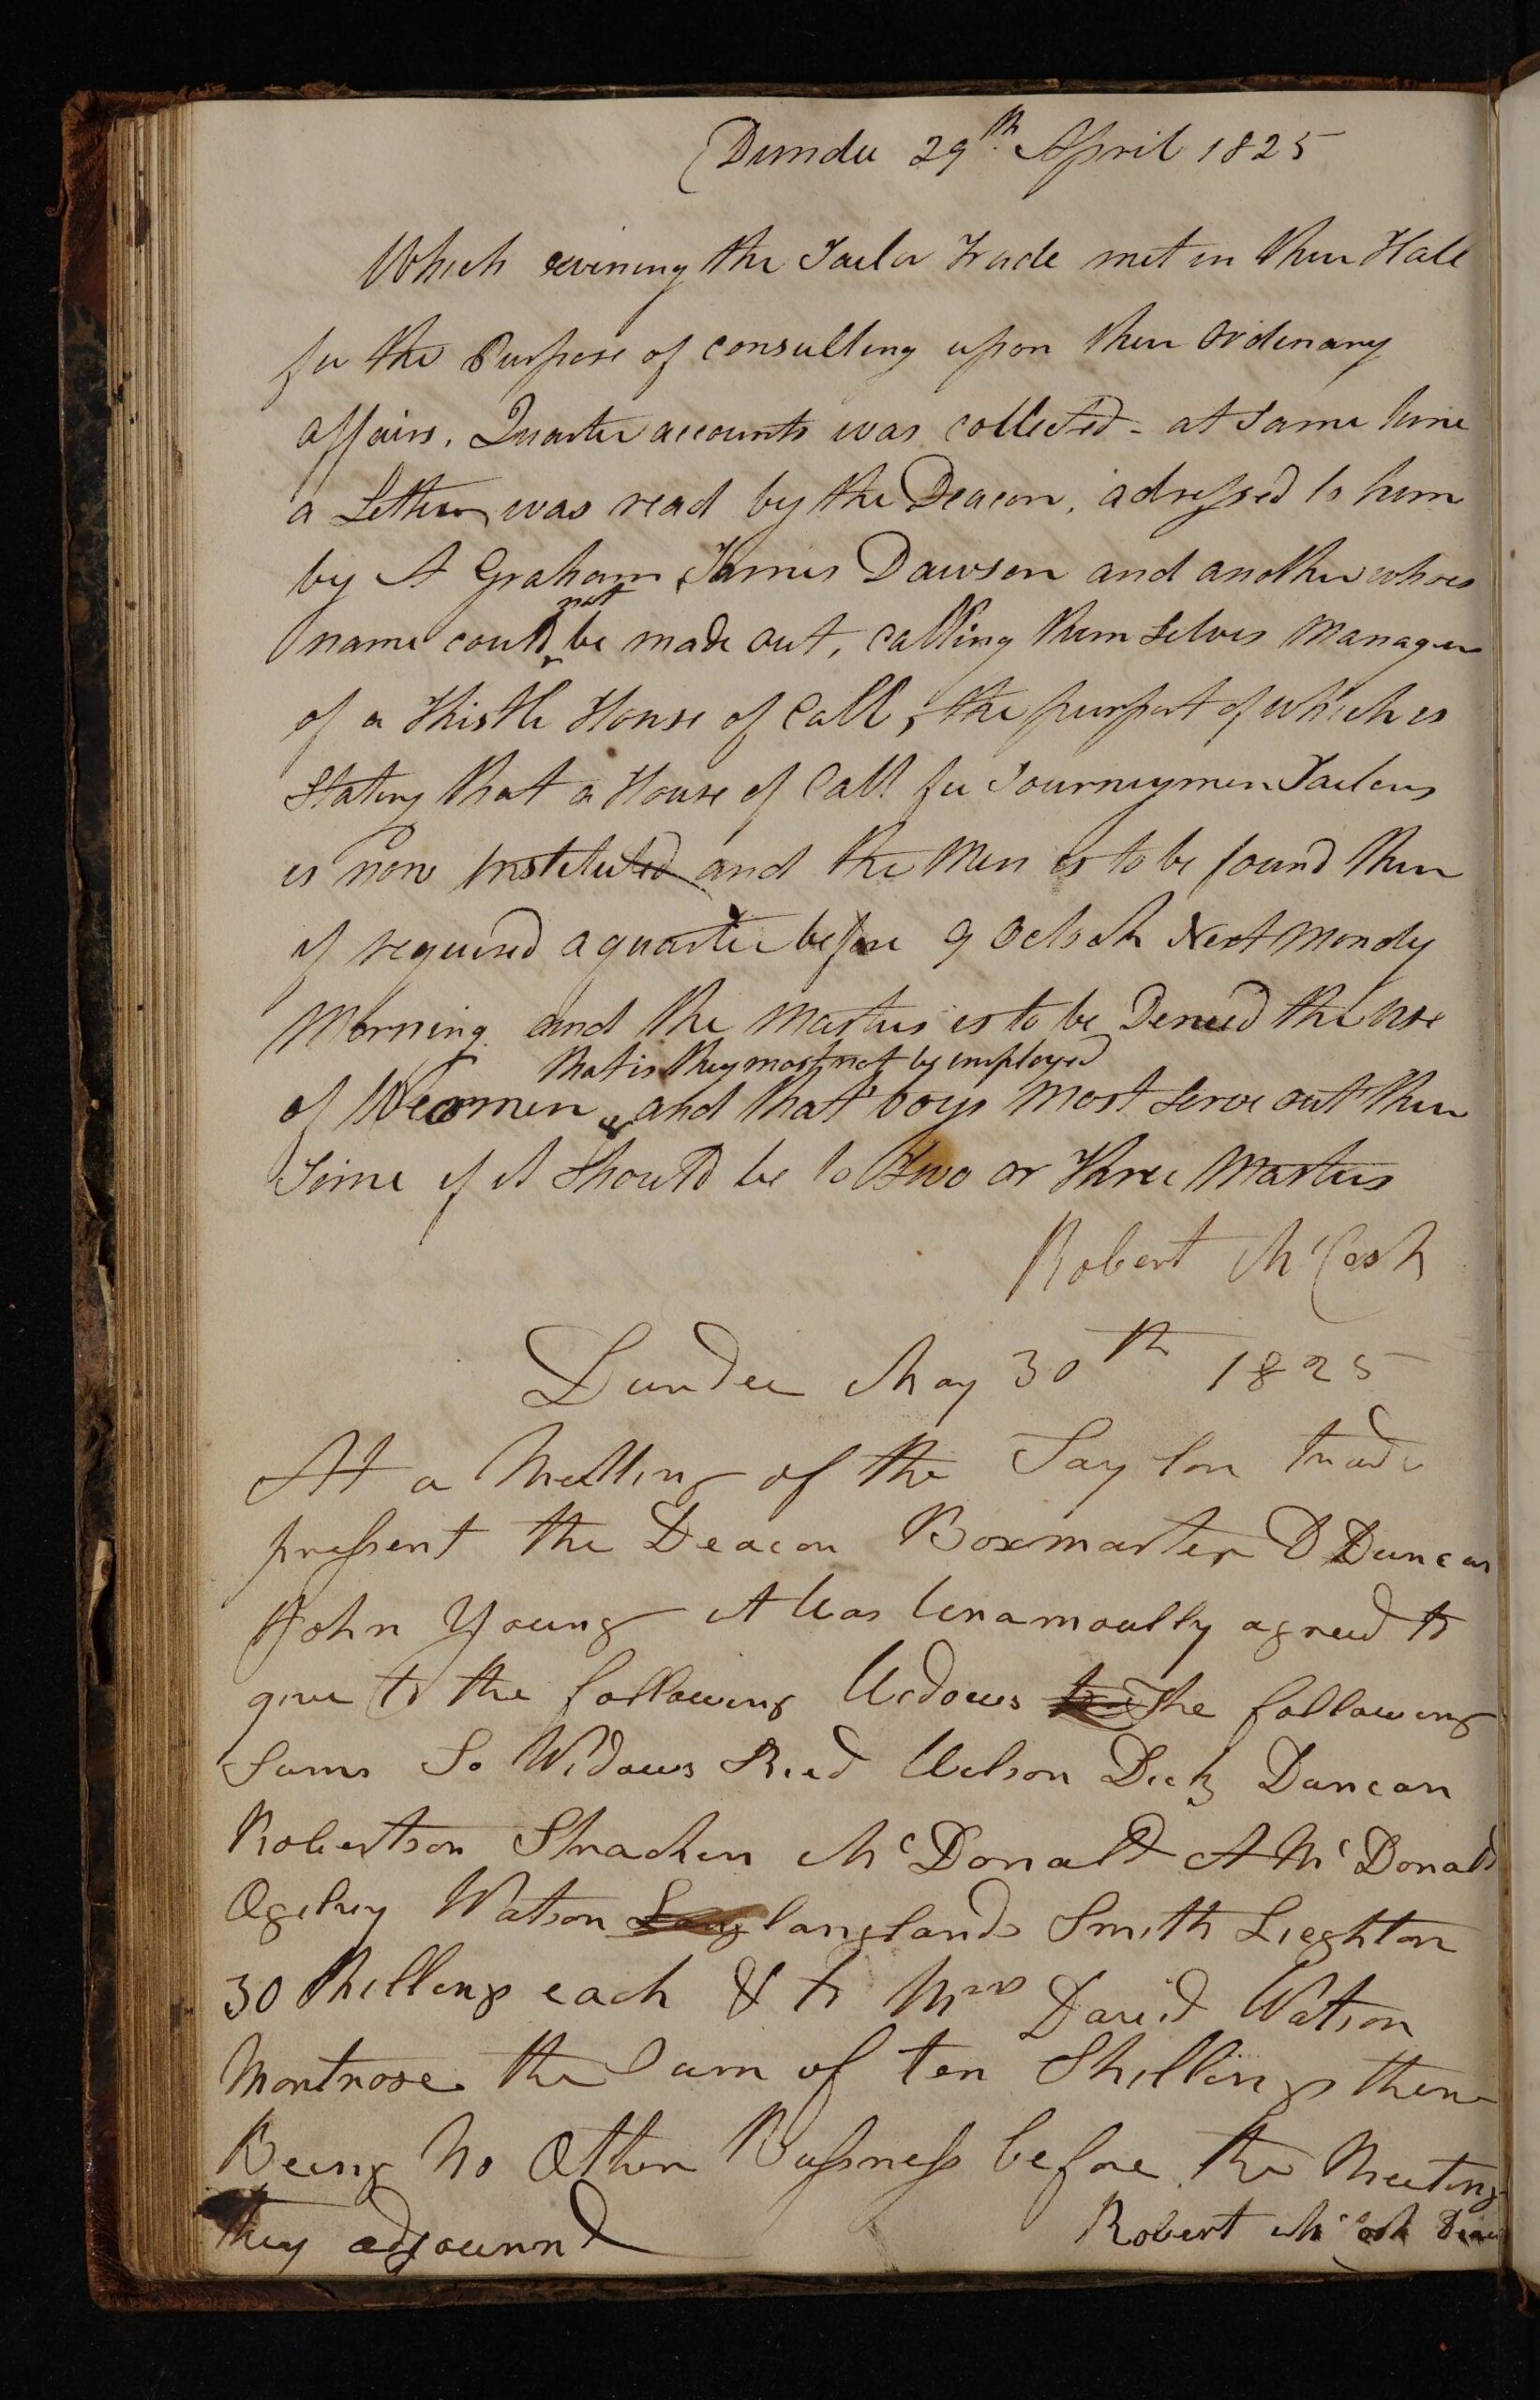 Dundee 29th April 1825
Which evening the Tailor Trade met in their Hall
for the Purpose of consulting upon their ordinary
affairs. Quarter accounts was collected - at same time
a Letter was read by the Deacon, adressed to him
by A Graham James Dawson and another whoes
name could not be made out, calling them selves Managers
of a Thistle House of Call, the purport of which is
Stating that a House of Call for Journeymen Tailors
is now Instituted and the Men is to be found there
if required a quarter before 9 Oclock Next Mondy
Morning and the Masters is to be Denied the use
of Weomen that is they most not be employed and that boys Most serve out their
Time if it Should be to two or Three Masters
Robert McCash
Dundee May 30th 1825
At a Metting of the Taylor trade
pressent the Deacon Boxmaster D Duncan
John Young it Was Unamoully agreed to
give to the following Widows the following
Sums To Widows Reed Wilson Dick Duncan
Robertson Strachen McDonald A McDonald
Ogilvy Watson langlands Smith Lieghton
30 Shillings each & to Mrs David Watson
Montrose the Sum of ten Shillings there
Being No Other Bussness before the Meeting
they adjournd
Robert McCash